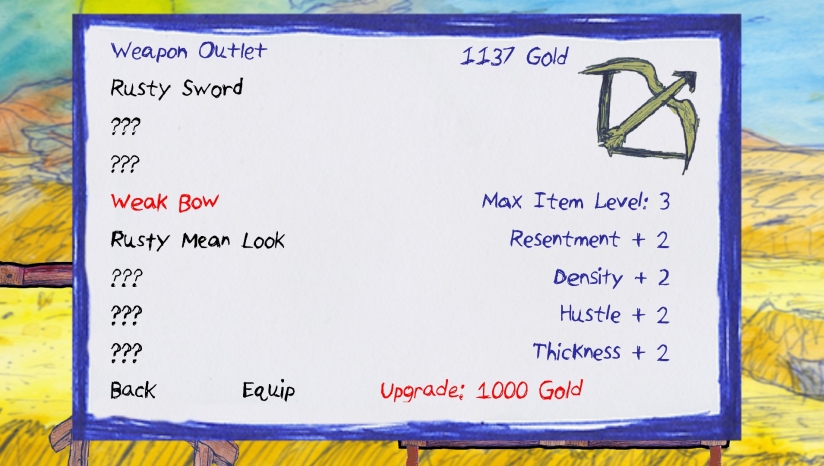 Weapon Outlet 1137 Gold
Rusty Sword
???
???
Weak Bow Max Item Level: 3
Rusty Mean Look Resentment + 2
??? Density + 2
??? Hustle + 2
??? Thickness + 2
Back Equip Upgrade: 1000 Gold